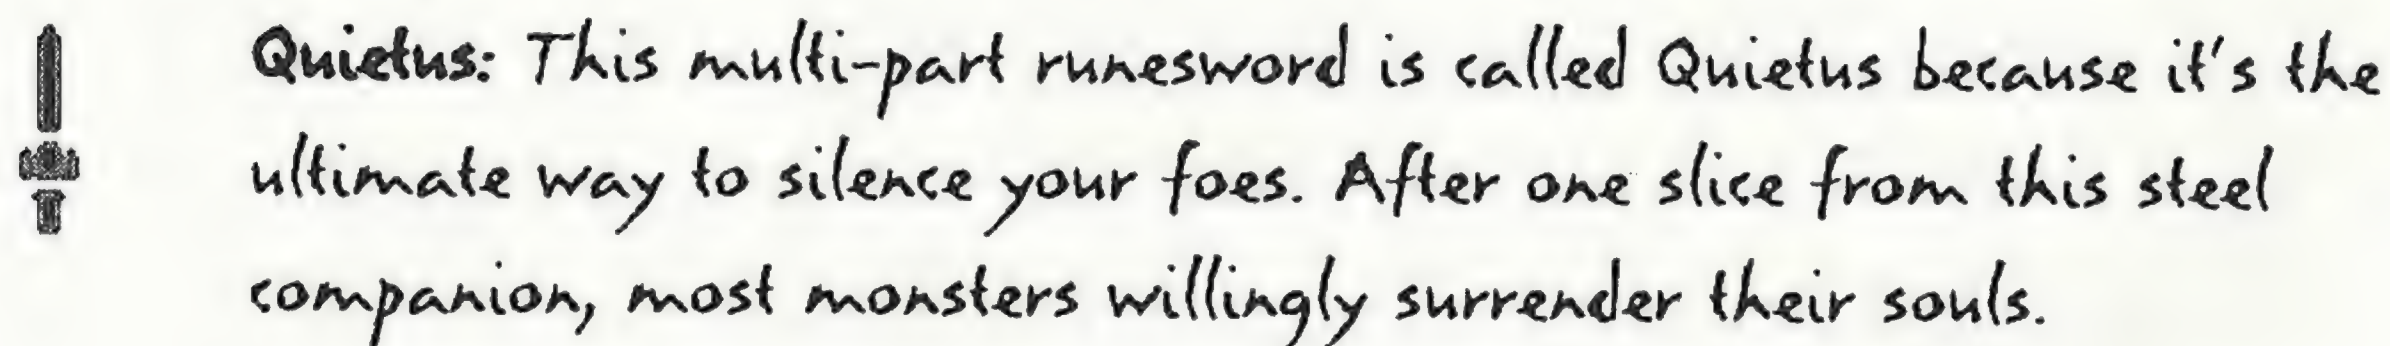 Quietus: This multi-part runesword is called Quietus because it's the
ultimate way to silence your foes. After one slice from this steel
companion, most monsters willingly surrender their souls.